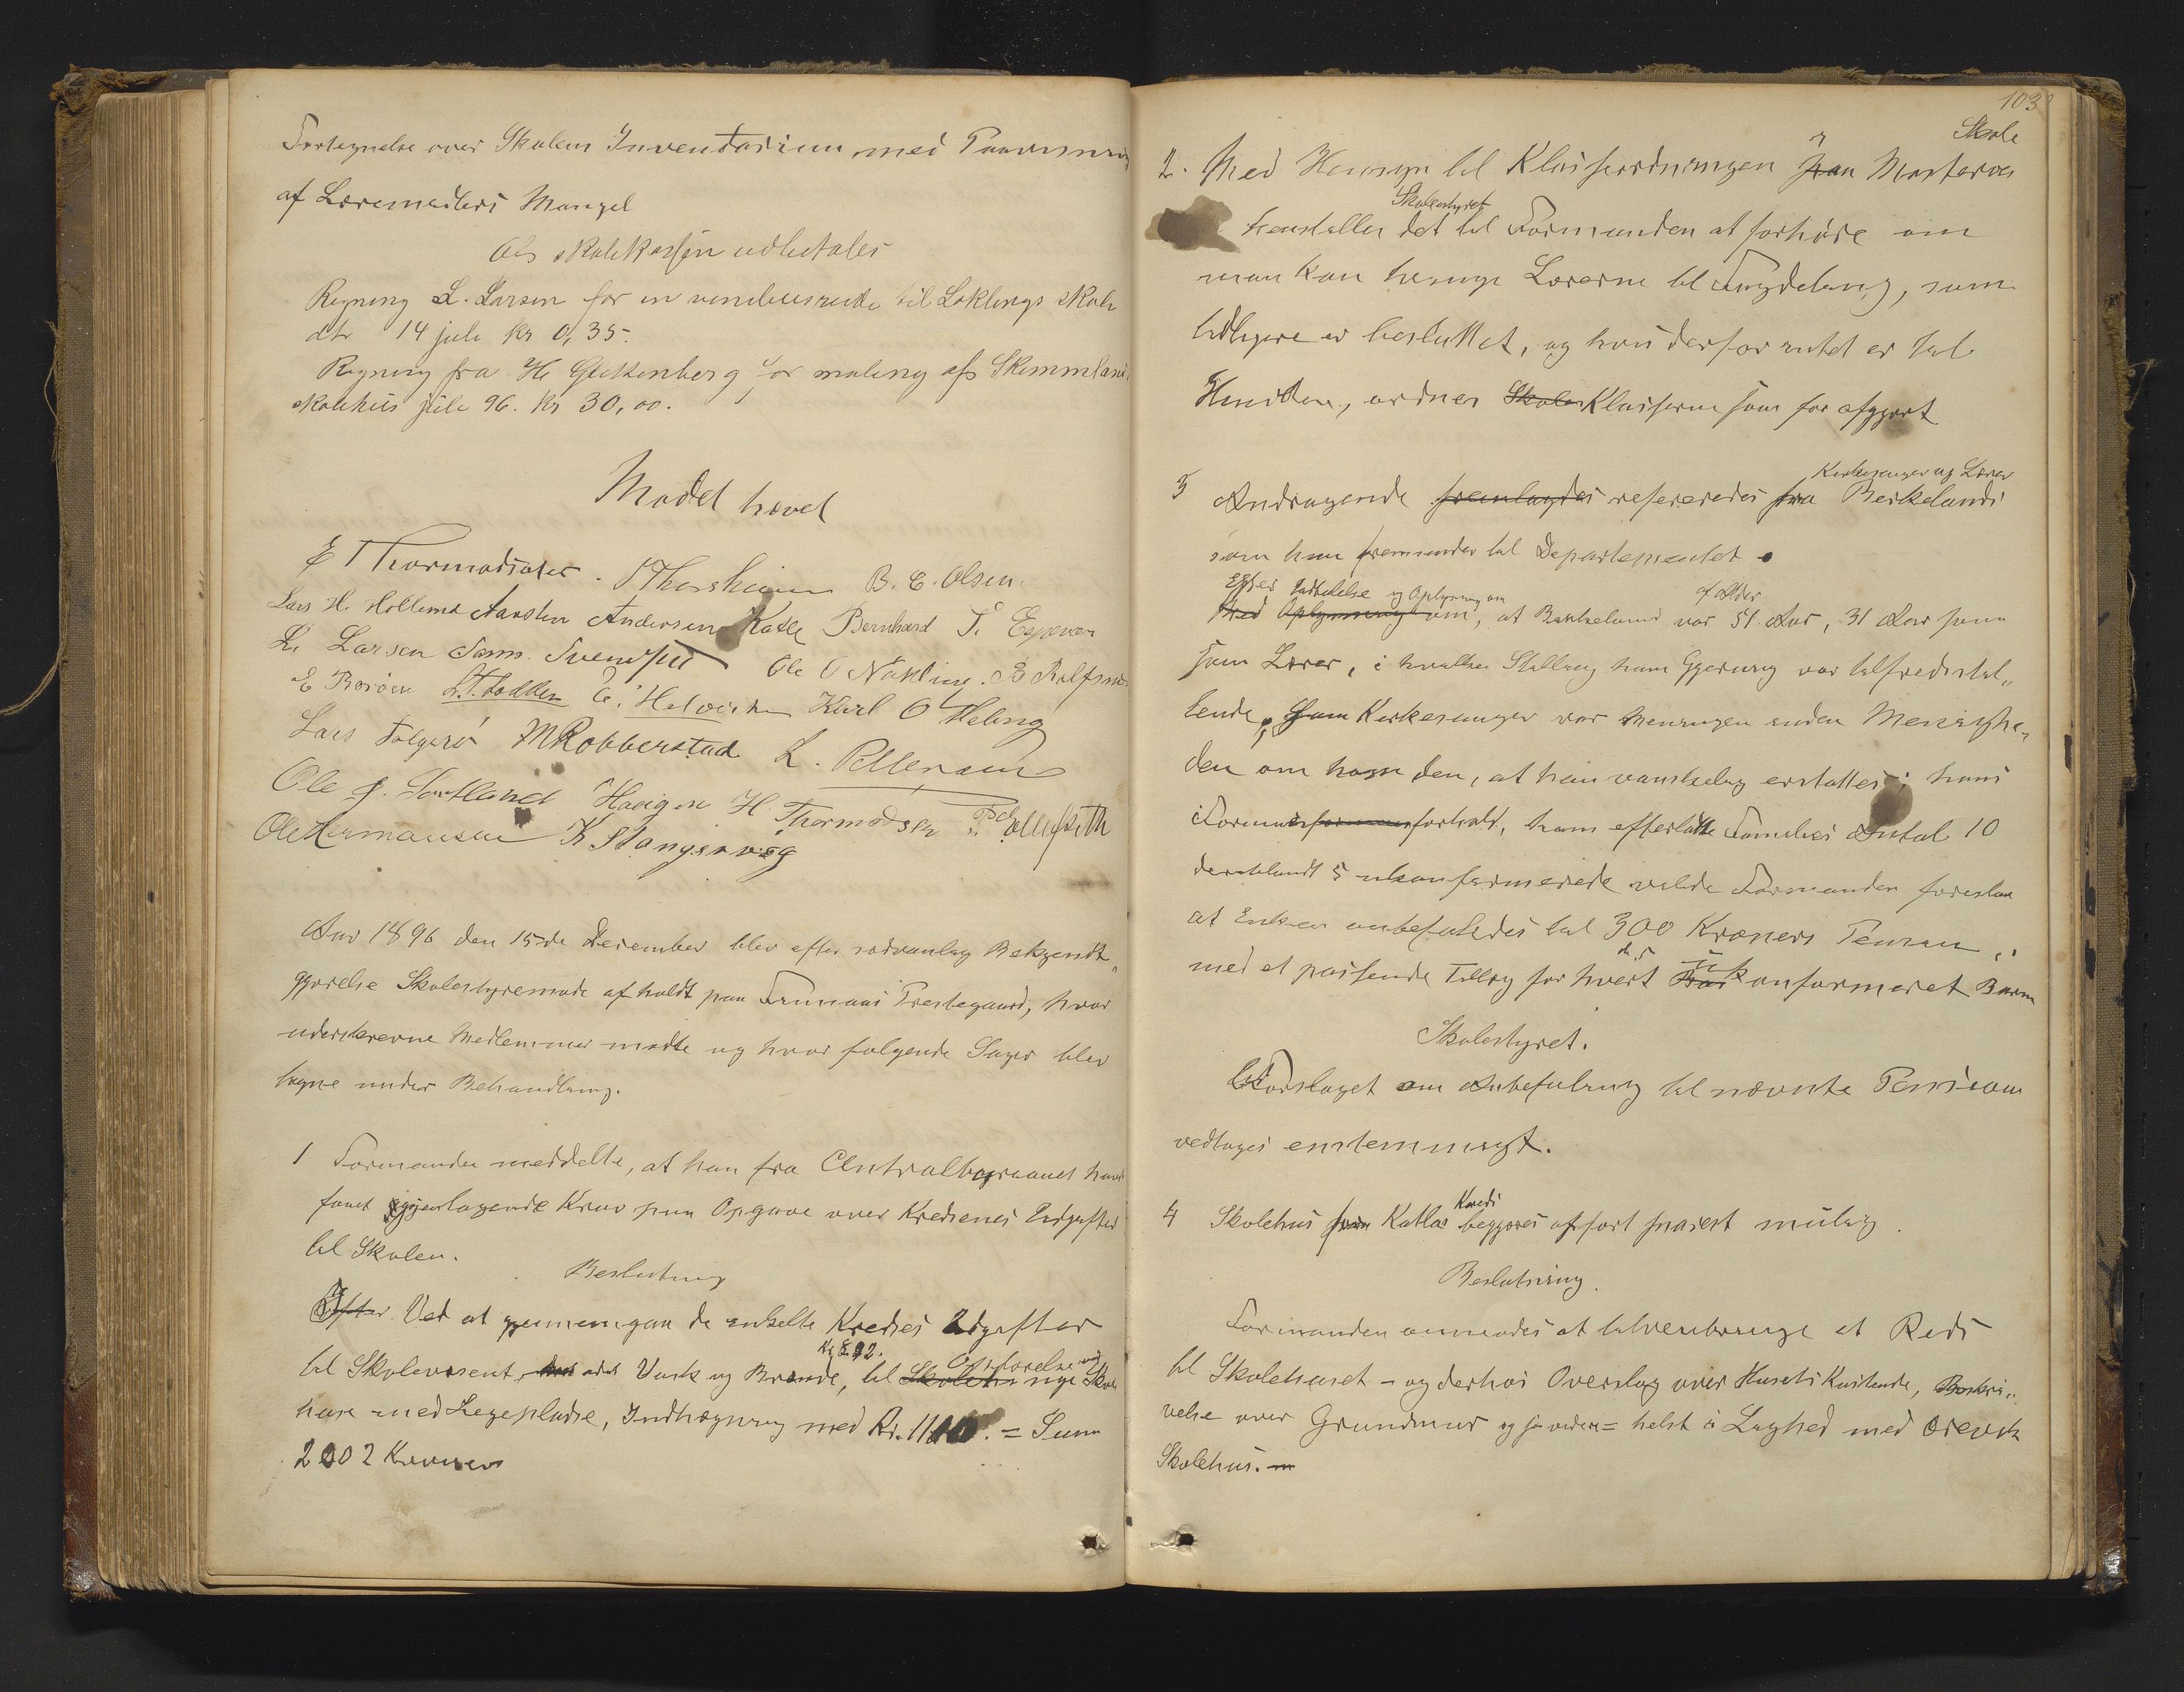 Fortegnelse over Skolens Inventarium med Paavisning
af Læremidlers Mangel
Af skolekassen udbetales
Regning L. Larsen for en vinduesrude til Loklings skole
dtr 14 juli kr 0,35.
Regning fra H. Guttenberg for maling af Skimmland
skolehus juli 96. kr 30,00.
Mødet hævet
E Thormodsæter. S Thorsheim B. E. Olsen
Lars H. Hollund Karsten Andersen Katle Bernhard T. Espever
L. Larsen Sams. Svendsen Ole O Nøkling. B Rolfsnes
E Borøen L. T. Lodden C. Halvorsen Karl O Heling
Lars Folgerø M Robberstad L. Pettersen
Ole J. Sortland Haagen H. Thormodsen
Ole Hermansen K Stangervag
Aar 1896 den 15de December blev efter sedvanlig Bekjendt„
gjørelse Skolestyremøde afholdt paa Finnaas Prestegaard, hvor
underskrevne Medlemmer mødte og hvor følgende Sager blev
tagne under Behandling.
1 Formanden meddelte, at han fra Centralbyreauet havde
faaet gjentagende Krav paa Opgave over Kredsenes Udgifter
til Skolen.
Beslutning
Efter Ved at gjennemgaa de enkelte Kredses Udgifter
Kr 892.
til Skolevæsent, Vask og Brænde, til Skolehu Opførelse og nye Skole
huse med Legepladse, Indhegning med Kr. 1110. = Sum
2002 Kroner
103
Skole
2. Med Hensyn til Klasseordningen fraa i Mosterøen
Skolestyret
henstaller det til Formanden at forhøre om
man kan tvinge Lærerne til Tingdeling, som
tidligere er besluttet, og hvis derfor intet er til
Hinder, ordner Skoles Klasserne som før afgjort
Kirkesanger og Lærer
3 Andragende fremlagdes refereredes fra Berkelands
som han fremsender til Departementet
Efter Indstillelse og Oplysning om af Alder
Med Oplysning om, at Berkeland var 51 Aar, 31 Aar som
som Lærer, i hvilken Stilling ham Gjerning var tilfredsstil„
lende, Som Kirkesanger var Meningen inden Menighe„
den om ham den, at han vanskelig erstattes; hans
Formuesforhold, ham efterladte Families Antal 10
deriblandt 5 ukonfirmerede vilde Formanden foreslaa
at Enken anbefaledes til 300 Kroners Pension
med et passende Tillæg for hvert de 5 ukonfirmeret Barn
Skolestyret.
Forslaget om Anbefaling til nævnte Pension
vedtages enstemmigt.
Kreds
4 Skolehus for Katla begjæres opført snarest mulig.
Beslutning.
Formanden anmodes at tilveiebringe et Rids
til Skolehuset - og derhos Overslag over Husets Kostende, Beskri„
velse over Grundmur og så videre = helst i Lighed med Ørevik
Skolehus.